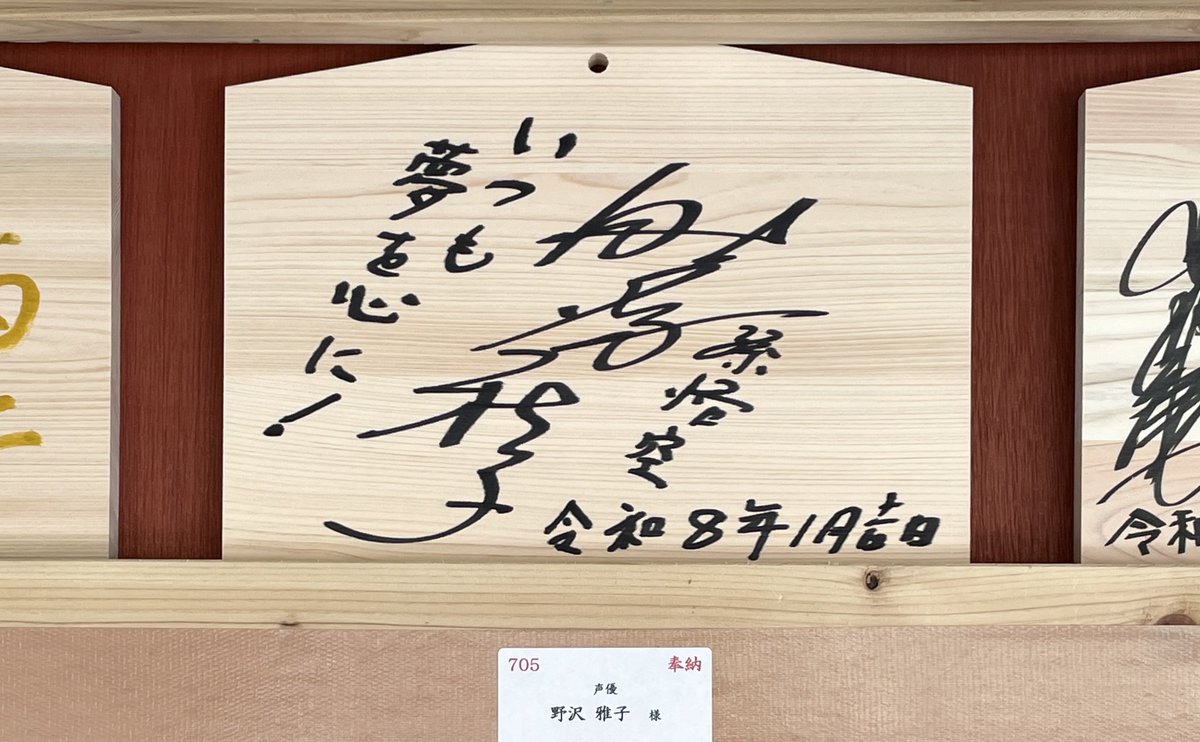 いつも
夢を心に!
野沢雅子
孫悟空
令和8年1月吉日
令和
705
奉納
声優
野沢 雅子 様